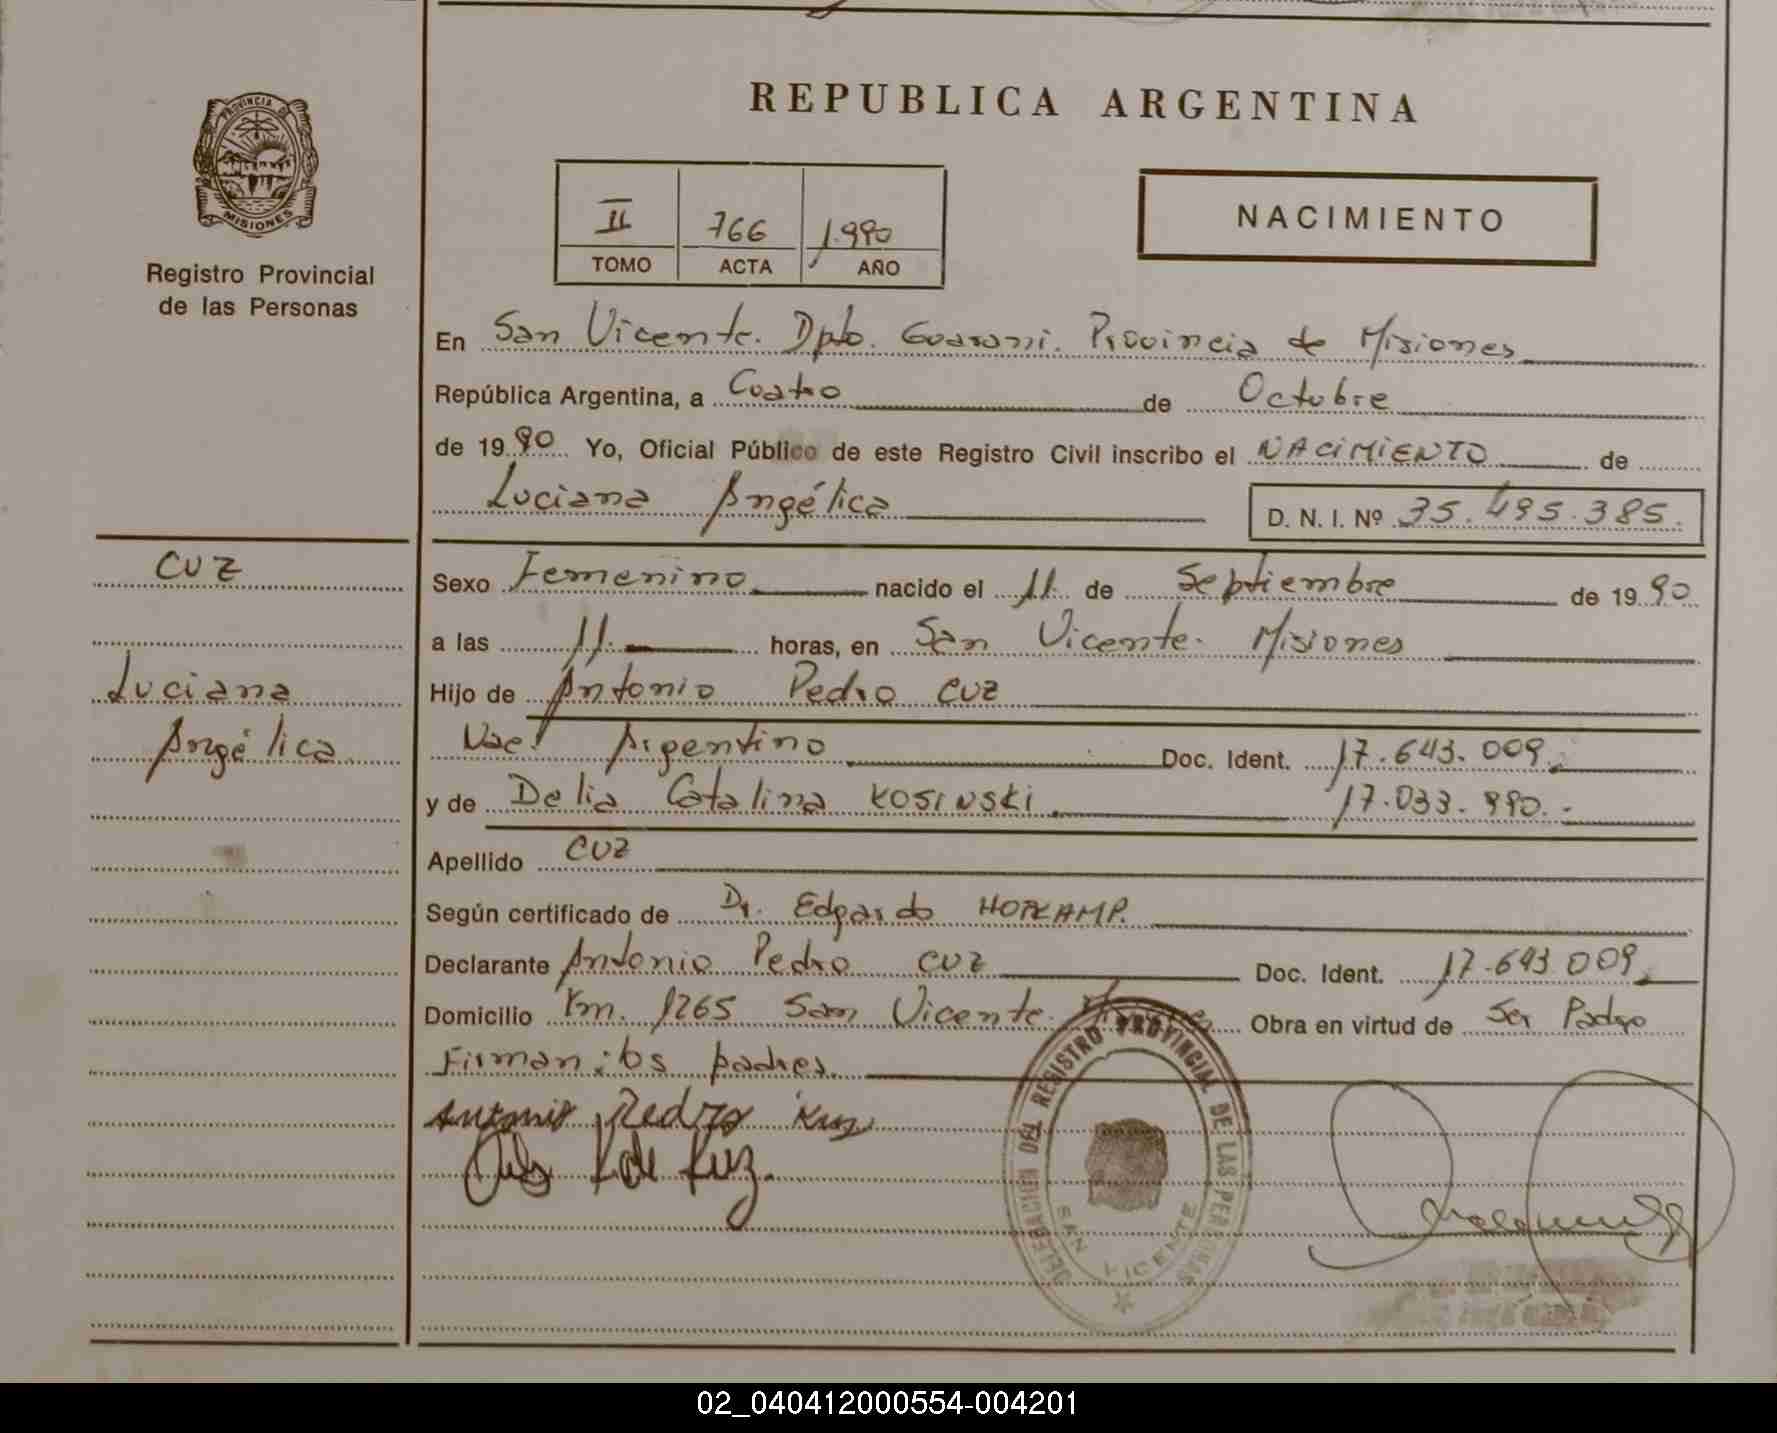 REPUBLICA ARGENTINA
PROVINCIA DE
MISIONES
Registro Provincial
de las Personas
II 766 1.990
TOMO ACTA AÑO
NACIMIENTO
En San Vicente. Dpto. Guaraní. Provincia de Misiones
República Argentina, a Cuatro de Octubre
de 1990 Yo, Oficial Público de este Registro Civil inscribo el NACIMIENTO de
Luciana Angélica D. N. I. Nº 35.495.385.
CUZ
Luciana
Angélica
Sexo Femenino nacido el 11. de Septiembre de 1990
a las 11. horas, en San Vicente. Misiones
Hijo de Antonio Pedro CUZ
Nac. Argentino Doc. Ident. 17.643.009.
y de Delia Catalina KOSINSKI. 17.033.990.
Apellido CUZ
Según certificado de Dr. Edgardo
Declarante Antonio Pedro CUZ Doc. Ident. 17.643.009.
Domicilio Km. 1265 San Vicente. Misiones Obra en virtud de Ser Padre
Firman: los padres.
Antonio Pedro Kuz
K de Kuz.
DELEGACION DEL REGISTRO PROVINCIAL DE LAS PERSONAS
SAN VICENTE
02_040412000554-004201